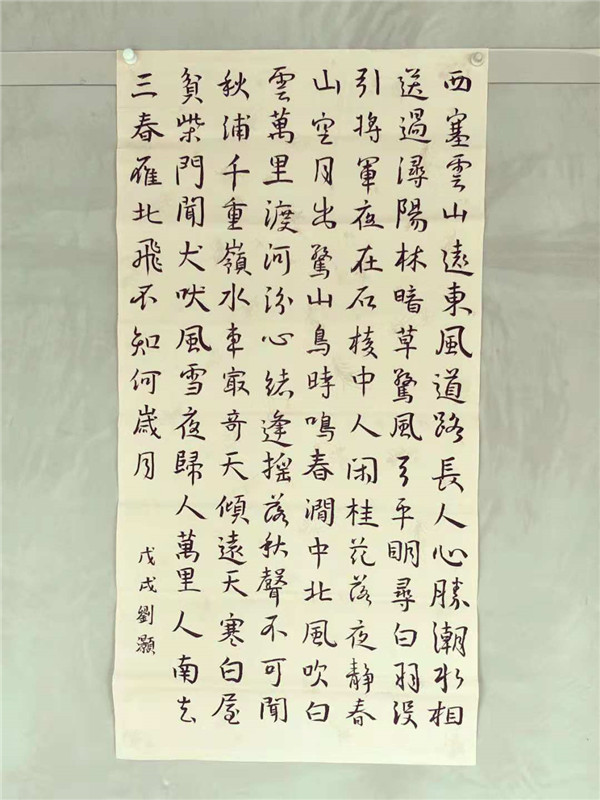 西塞雲山遠東風道路長人心勝潮水相
送過潯陽林暗草驚風弓平明尋白羽没
引將軍夜在石棱中人闲桂花落夜靜春
山空月出驚山鳥時鳴春澗中北風吹白
雲萬里渡河汾心緒逢摇落秋聲不可聞
秋浦千重嶺水車㝡奇天傾遠天寒白屋
貧柴門聞犬吠風雪夜歸人萬里人南去
三春雁北飛不知何歲月
戊戌劉灝